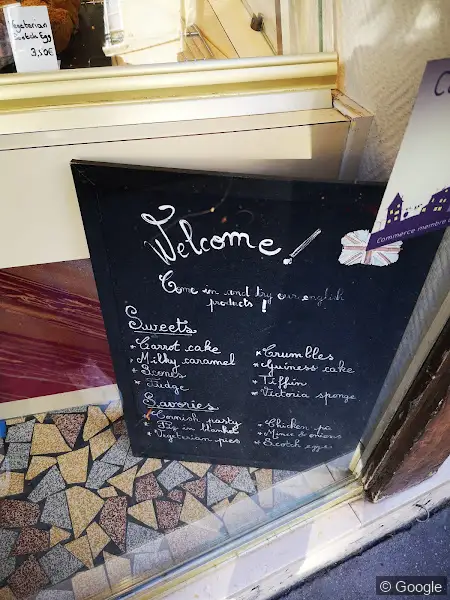 Vegetarian
Scotch Egg
3,50€
Welcome!
Come in and try our english
products!
Sweets
* Carrot cake
* Milky caramel
* Scones
* Fudge
* Crumbles
* Guiness cake
* Tiffin
* Victoria sponge
Savories
* Cornish pasty
* Pig in blanket
* Vegetarian pies
* Chicken
* Mince & onions
* Scotch eggs
Commerce membre
© Google